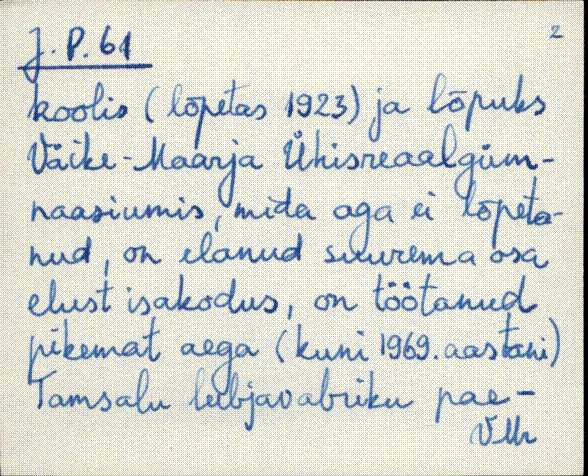 J. P. 61
2
koolis (lõpetas 1923) ja lõpuks
Väike-Maarja Ühisreaalgüm-
naasiumis, mida aga ei lõpeta-
nud, on elanud suurema osa
elust isakodus, on töötanud
pikemat aega (kuni 1969. aastani)
Tamsalu lubjavabriku pae-